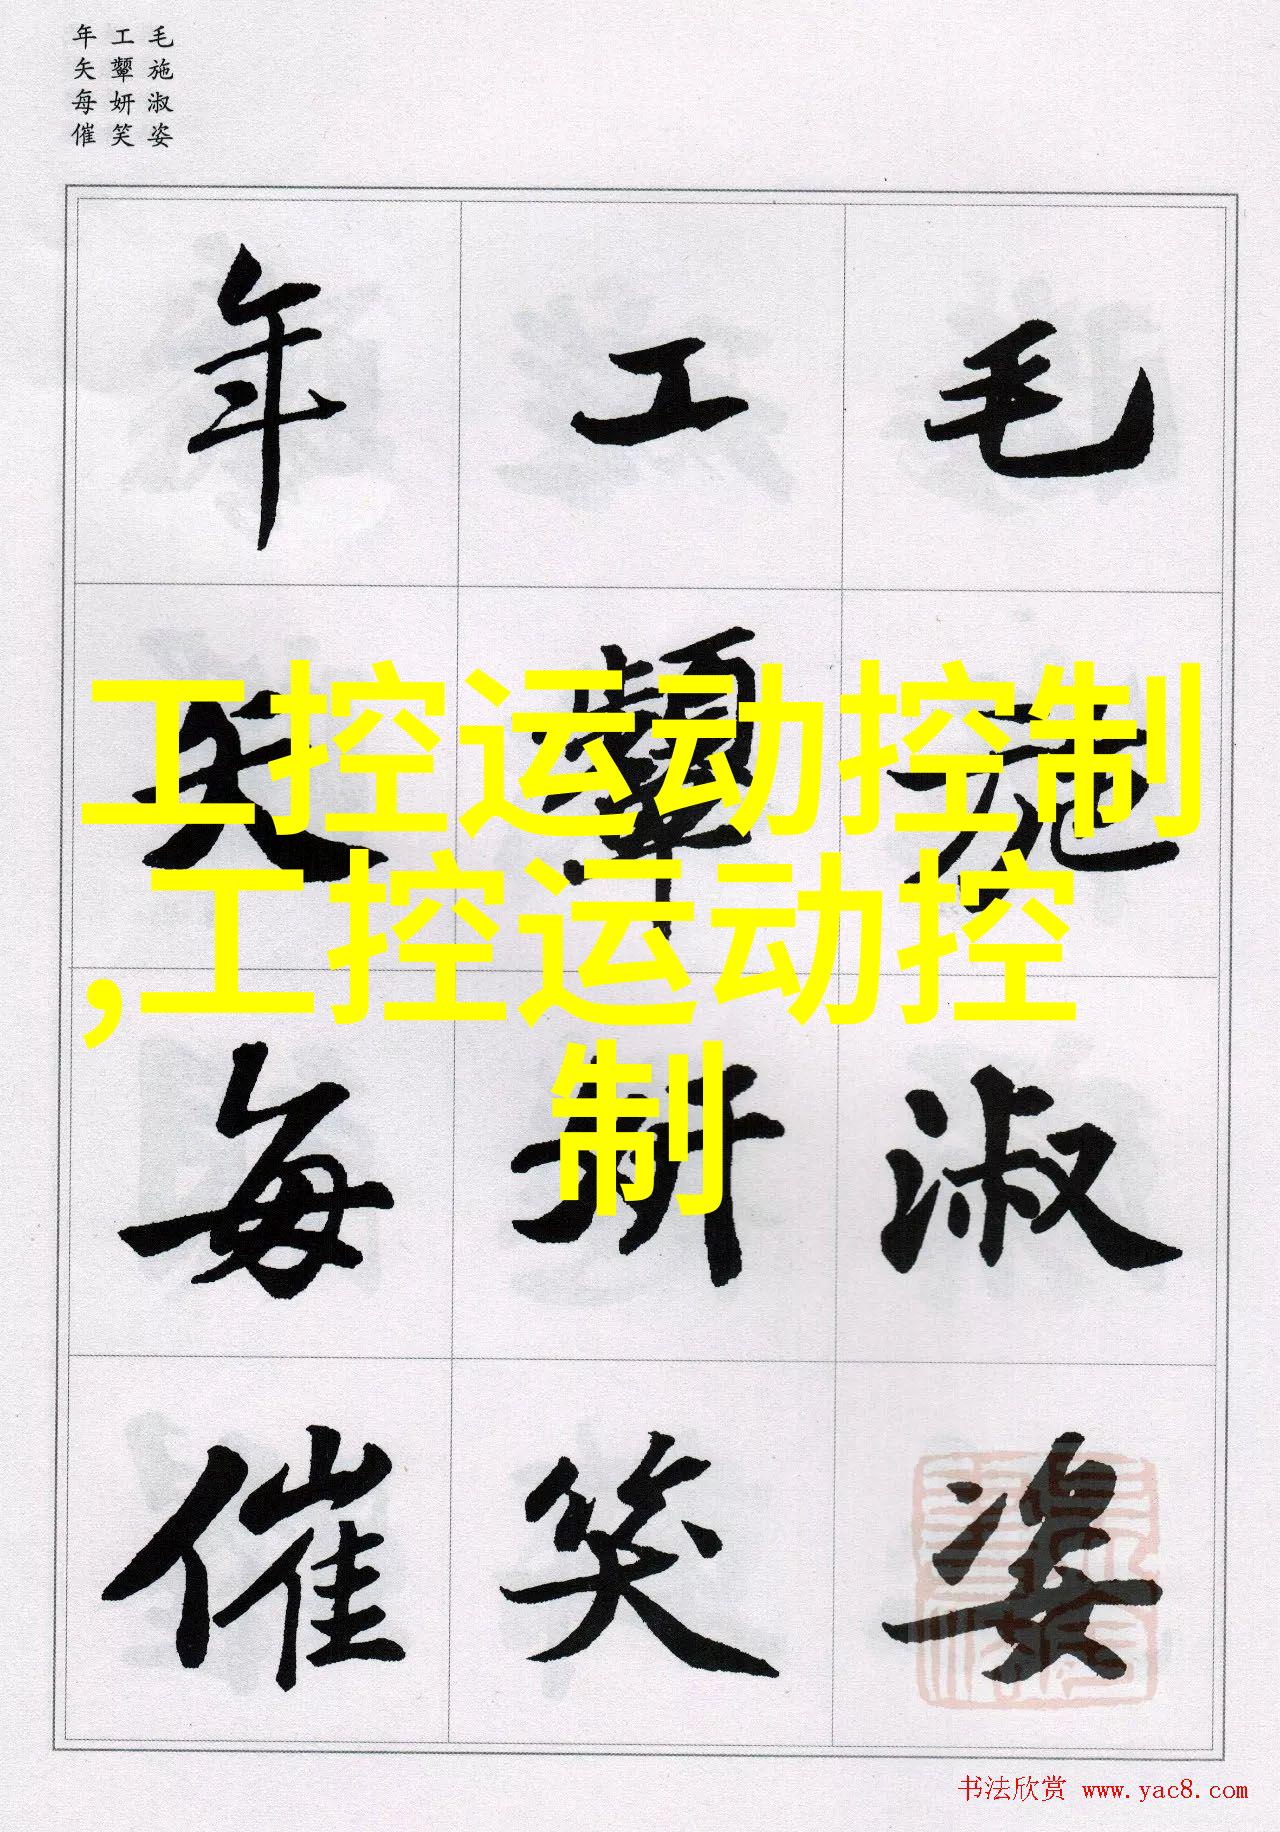 毛施淑姿
工颦妍笑
年矢每催
毛施淑姿
工颦妍笑
年矢每催
工控运动控制
,工控运动控
制
书法欣赏 www.yac8.com